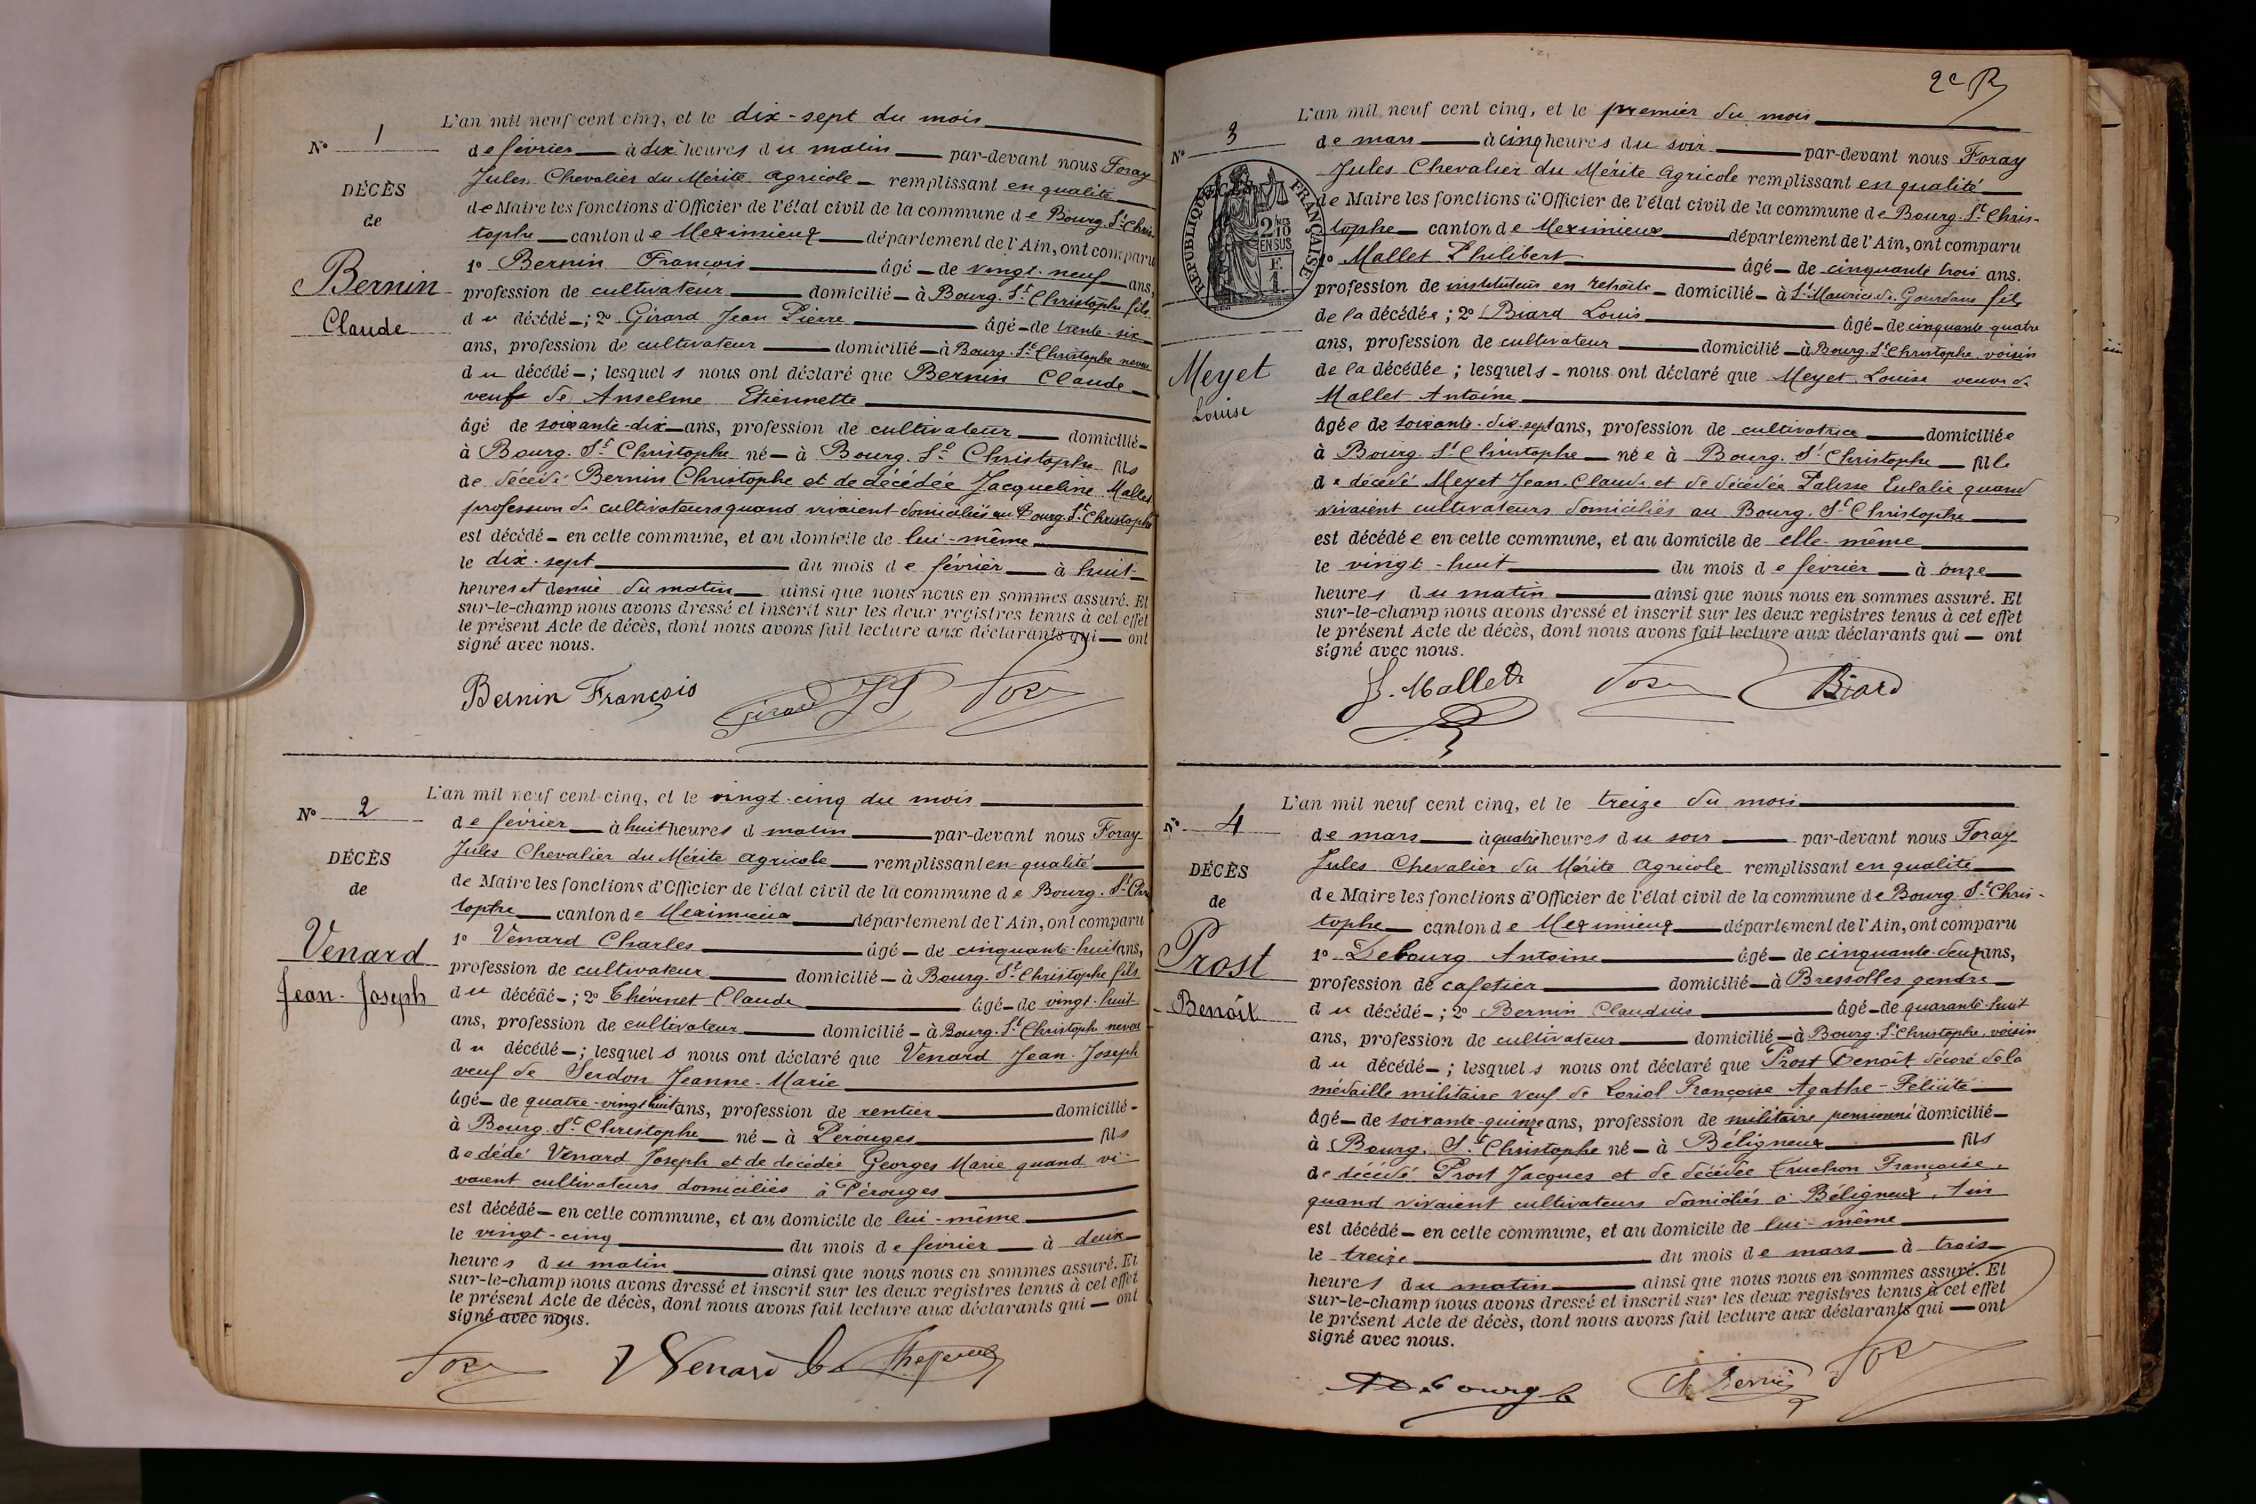 N° 1
DÉCÈS
de
Bernin
Claude
L'an mil neuf cent cinq, et le dix-sept du mois
de février à dix heures du matin par-devant nous Foray
Jules, Chevalier du Mérite agricole remplissant en qualité
de Maire les fonctions d'Officier de l'état civil de la commune de Bourg-St-Chris-
tophe canton de Meximieux département de l'Ain, ont comparu
1° Bernin François âgé de vingt-neuf ans,
profession de cultivateur domicilié à Bourg-St-Christophe fils
du décédé ; 2° Girard Jean Pierre âgé de trente-six
ans, profession de cultivateur domicilié à Bourg-St-Christophe neveu
du décédé ; lesquels nous ont déclaré que Bernin Claude
veuf de Anselme Etiennette
âgé de soixante-dix ans, profession de cultivateur domicilié
à Bourg-St-Christophe né à Bourg-St-Christophe fils
de décédé Bernin Christophe et de décédée Jacqueline Mallet
profession de cultivateurs quand vivaient domiciliés au Bourg-St-Christophe
est décédé en cette commune, et au domicile de lui-même
le dix-sept du mois de février à huit
heures et demie du matin ainsi que nous nous en sommes assuré. Et
sur-le-champ nous avons dressé et inscrit sur les deux registres tenus à cet effet
le présent Acte de décès, dont nous avons fait lecture aux déclarants qui ont
signé avec nous.
Bernin François Girard JP Foray
N° 2
DÉCÈS
de
Venard
Jean-Joseph
L'an mil neuf cent cinq, et le vingt-cinq du mois
de février à huit heures d matin par-devant nous Foray
Jules Chevalier du Mérite agricole remplissant en qualité
de Maire les fonctions d'Officier de l'état civil de la commune de Bourg-St-Chris
tophe canton de Meximieux département de l'Ain, ont comparu
1° Venard Charles âgé de cinquante-huit ans,
profession de cultivateur domicilié à Bourg-St-Christophe fils
du décédé ; 2° Thévenet Claude âgé de vingt-huit
ans, profession de cultivateur domicilié à Bourg-St-Christophe neveu
du décédé ; lesquels nous ont déclaré que Venard Jean-Joseph
veuf de Serdon Jeanne-Marie
âgé de quatre-vingt huit ans, profession de rentier domicilié
à Bourg-St-Christophe né à Pérouges fils
de dédé Venard Joseph et de décédée Georges Marie quand vi-
vaient cultivateurs domiciliés à Pérouges
est décédé en cette commune, et au domicile de lui-même
le vingt-cinq du mois de février à deux
heures du matin ainsi que nous nous en sommes assuré. Et
sur-le-champ nous avons dressé et inscrit sur les deux registres tenus à cet effet
le présent Acte de décès, dont nous avons fait lecture aux déclarants qui ont
signé avec nous.
Foray Venard
2e
N° 3
RÉPUBLIQUE FRANÇAISE
2/10 EN SUS
Meyet
Louise
L'an mil neuf cent cinq, et le premier du mois
de mars à cinq heures du soir par-devant nous Foray
Jules Chevalier du Mérite agricole remplissant en qualité
de Maire les fonctions d'Officier de l'état civil de la commune de Bourg-St-Chris-
tophe canton de Meximieux département de l'Ain, ont comparu
1° Mallet Philibert âgé de cinquante trois ans.
profession de instituteur en retraite domicilié à St-Maurice-de-Gourdans fils
de la décédée ; 2° Biard Louis âgé de cinquante-quatre
ans, profession de cultivateur domicilié à Bourg-St-Christophe, voisin
de la décédée ; lesquels nous ont déclaré que Meyet Louise veuve de
Mallet Antoine
âgée de soixante-dix-sept ans, profession de cultivatrice domiciliée
à Bourg-St-Christophe née à Bourg-St-Christophe fille
de décédé Meyet Jean-Claude et de décédée Palisse Eulalie quand
vivaient cultivateurs domiciliés au Bourg-St-Christophe
est décédée en cette commune, et au domicile de elle-même
le vingt-huit du mois de février à onze
heures du matin ainsi que nous nous en sommes assuré. Et
sur-le-champ nous avons dressé et inscrit sur les deux registres tenus à cet effet
le présent Acte de décès, dont nous avons fait lecture aux déclarants qui ont
signé avec nous.
Mallet Foray Biard
N° 4
DÉCÈS
de
Prost
Benoît
L'an mil neuf cent cinq, et le treize du mois
de mars à quatre heures du soir par-devant nous Foray
Jules Chevalier du Mérite agricole remplissant en qualité
de Maire les fonctions d'Officier de l'état civil de la commune de Bourg-St-Chris-
tophe canton de Meximieux département de l'Ain, ont comparu
1° Debourg Antoine âgé de cinquante-deux ans,
profession de cafetier domicilié à Bressolles gendre
du décédé ; 2° Bernin Claudius âgé de quarante-huit
ans, profession de cultivateur domicilié à Bourg-St-Christophe, voisin
du décédé ; lesquels nous ont déclaré que Prost Benoît décoré de la
médaille militaire veuf de Loriol Françoise Agathe-Félicité
âgé de soixante-quinze ans, profession de militaire pensionné domicilié
à Bourg-St-Christophe né à Béligneux fils
de décédé Prost Jacques et de décédée Truchon Françoise,
quand vivaient cultivateurs domiciliés à Béligneux, Ain
est décédé en cette commune, et au domicile de lui-même
le treize du mois de mars à trois
heures du matin ainsi que nous nous en sommes assuré. Et
sur-le-champ nous avons dressé et inscrit sur les deux registres tenus à cet effet
le présent Acte de décès, dont nous avons fait lecture aux déclarants qui ont
signé avec nous.
Debourg Bernin Foray